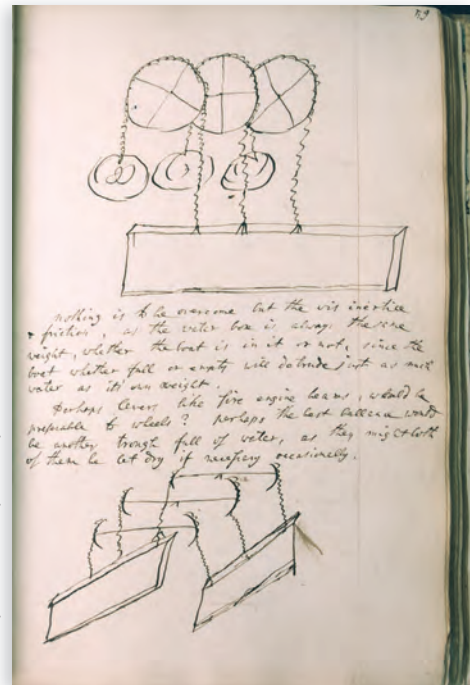 79
nothing is to be overcome but the vis inertiæ
& friction, as the water box is always the same
weight, whether the boat is in it or not, since the
boat whether full or empty will detrude just as much
water as its own weight.
Perhaps levers like fire engine beams, would be
preferable to wheels? perhaps the best ballance would
be another trough full of water, as they might both
of them be let dry if necessary occasionally.